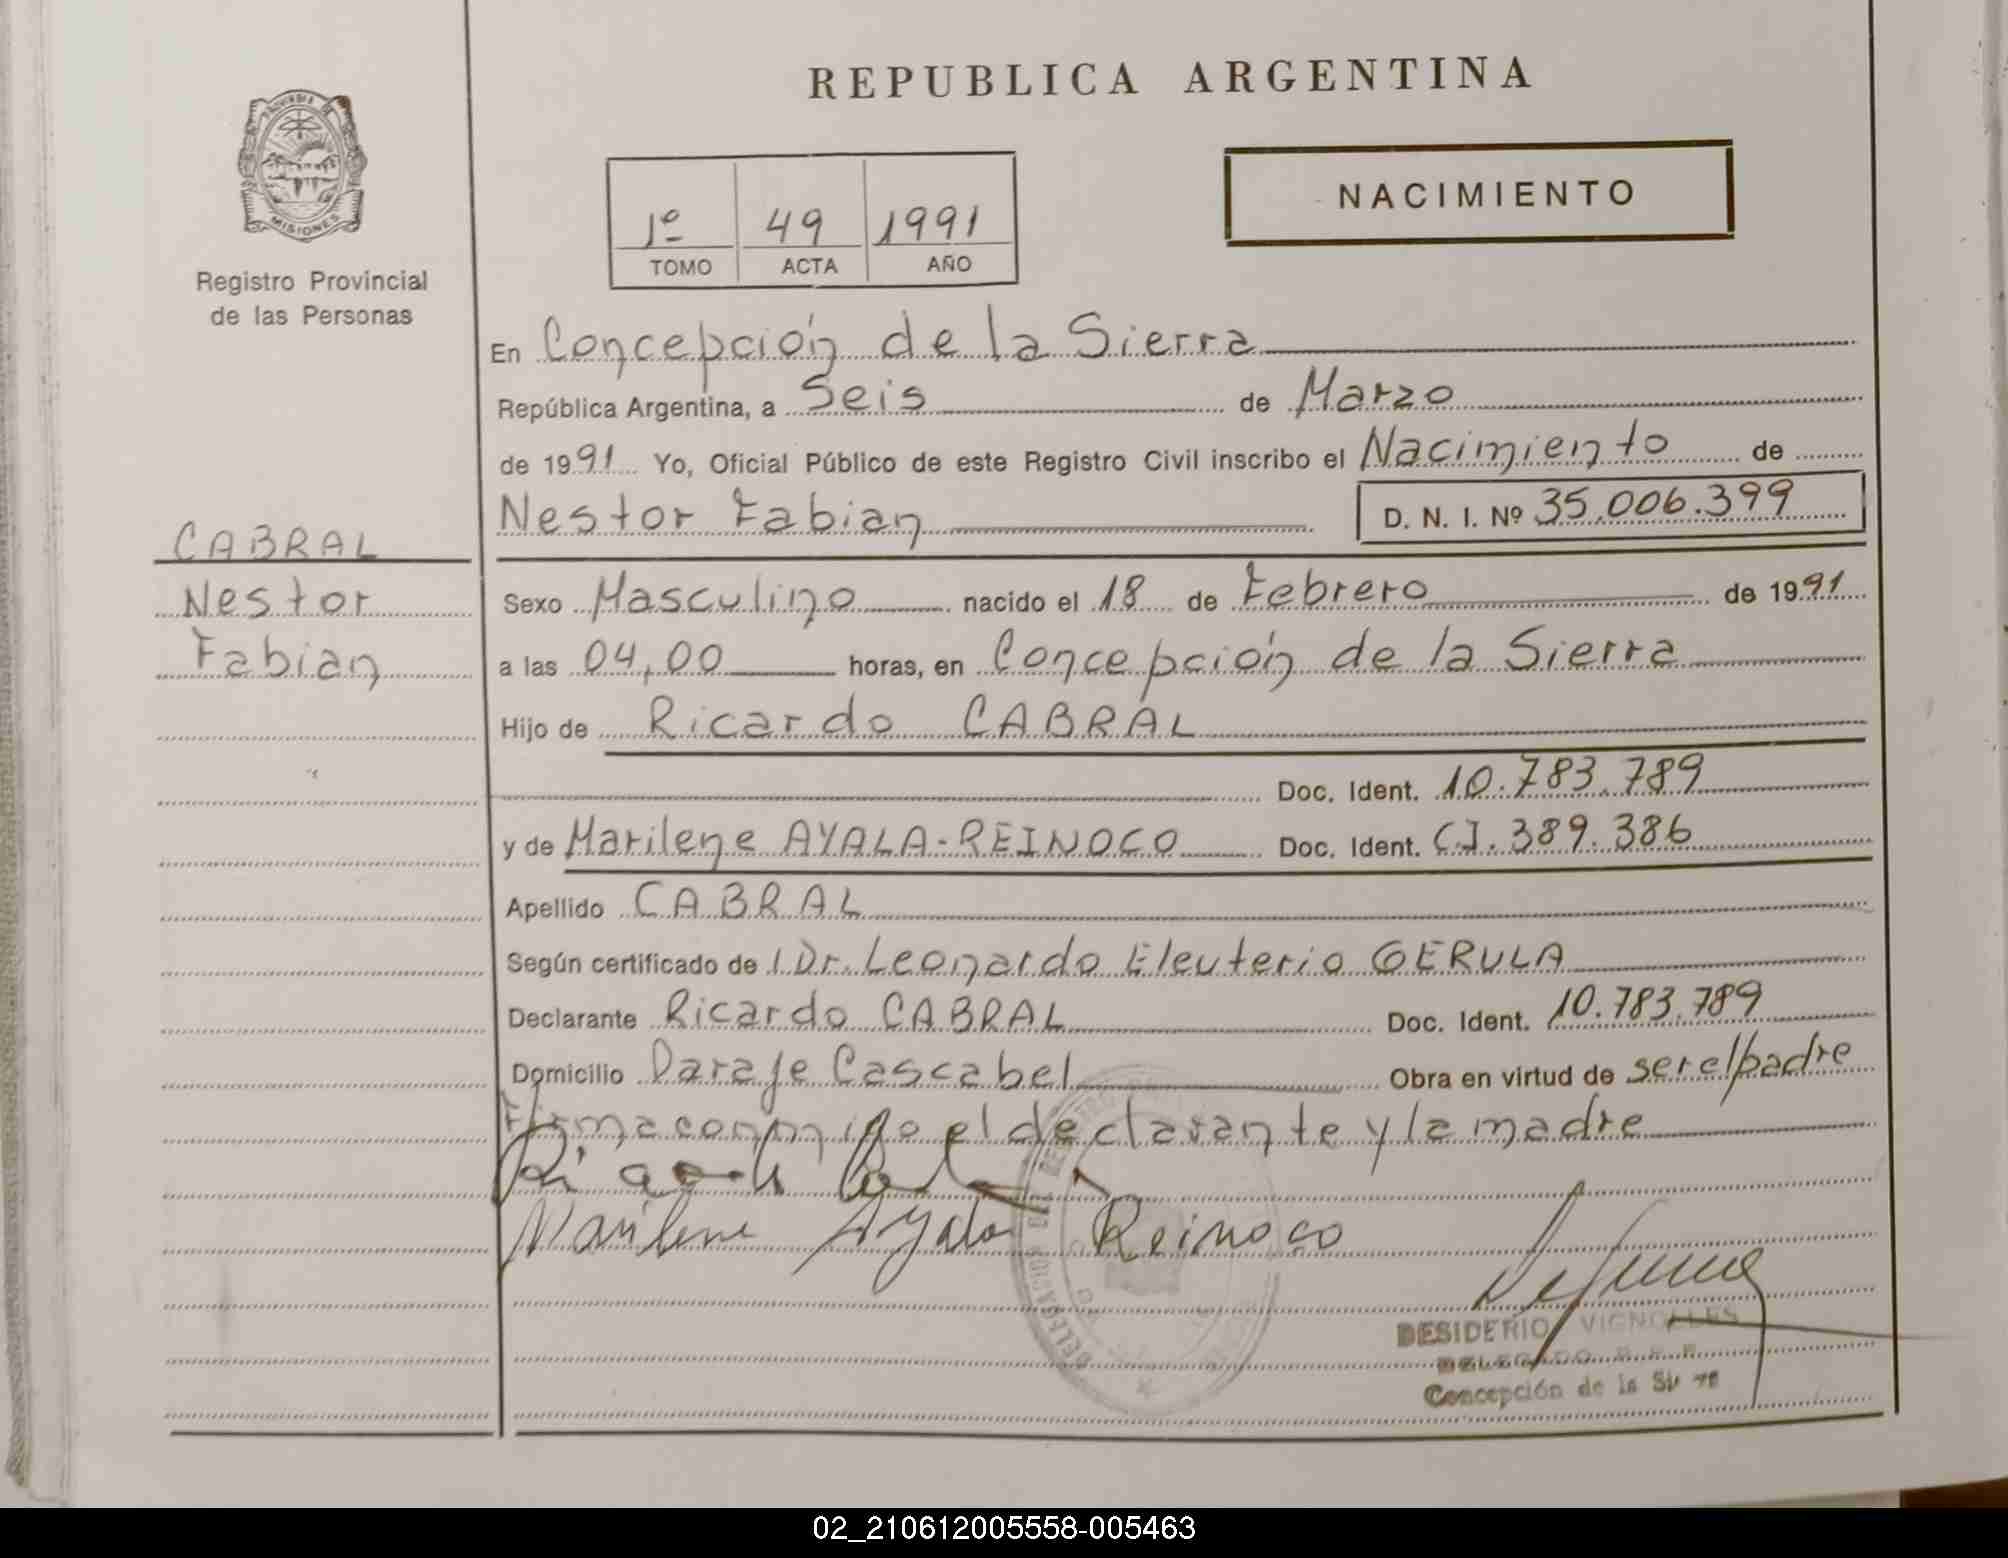 REPUBLICA ARGENTINA
MISIONES
Registro Provincial
de las Personas
1º 49 1991
TOMO ACTA AÑO
NACIMIENTO
En Concepción de la Sierra
República Argentina, a Seis de Marzo
de 1991 Yo, Oficial Público de este Registro Civil inscribo el Nacimiento de
Nestor Fabian D. N. I. Nº 35.006.399
CABRAL
Nestor
Fabian
Sexo Masculino nacido el 18 de Febrero de 1991
a las 04,00 horas, en Concepción de la Sierra
Hijo de Ricardo CABRAL
Doc. Ident. 10.783.789
y de Marilene AYALA-REINOCO Doc. Ident. CI.389.386
Apellido CABRAL
Según certificado de l Dr. Leonardo Eleuterio GERULA
Declarante Ricardo CABRAL Doc. Ident. 10.783.789
Domicilio Paraje Cascabel Obra en virtud de ser el padre
Firma conmigo el declarante y la madre
Marilene Ayala Reinoco
DESIDERIO VIGNOLLES
DELEGADO
Concepción de la
DELEGACION
02_210612005558-005463